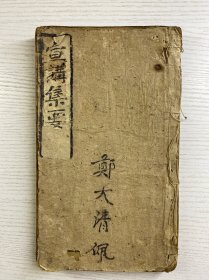 宣講集要
鄭大清佩
一